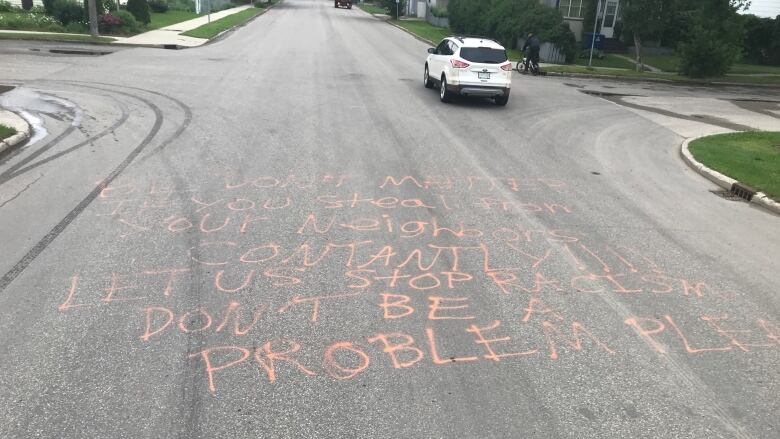 DON'T MATTER
IF YOU Steal From
Your Neighbors
CONTANTLY !!!
LET US STOP RACISM
DON'T BE A
PROBLEM PLE